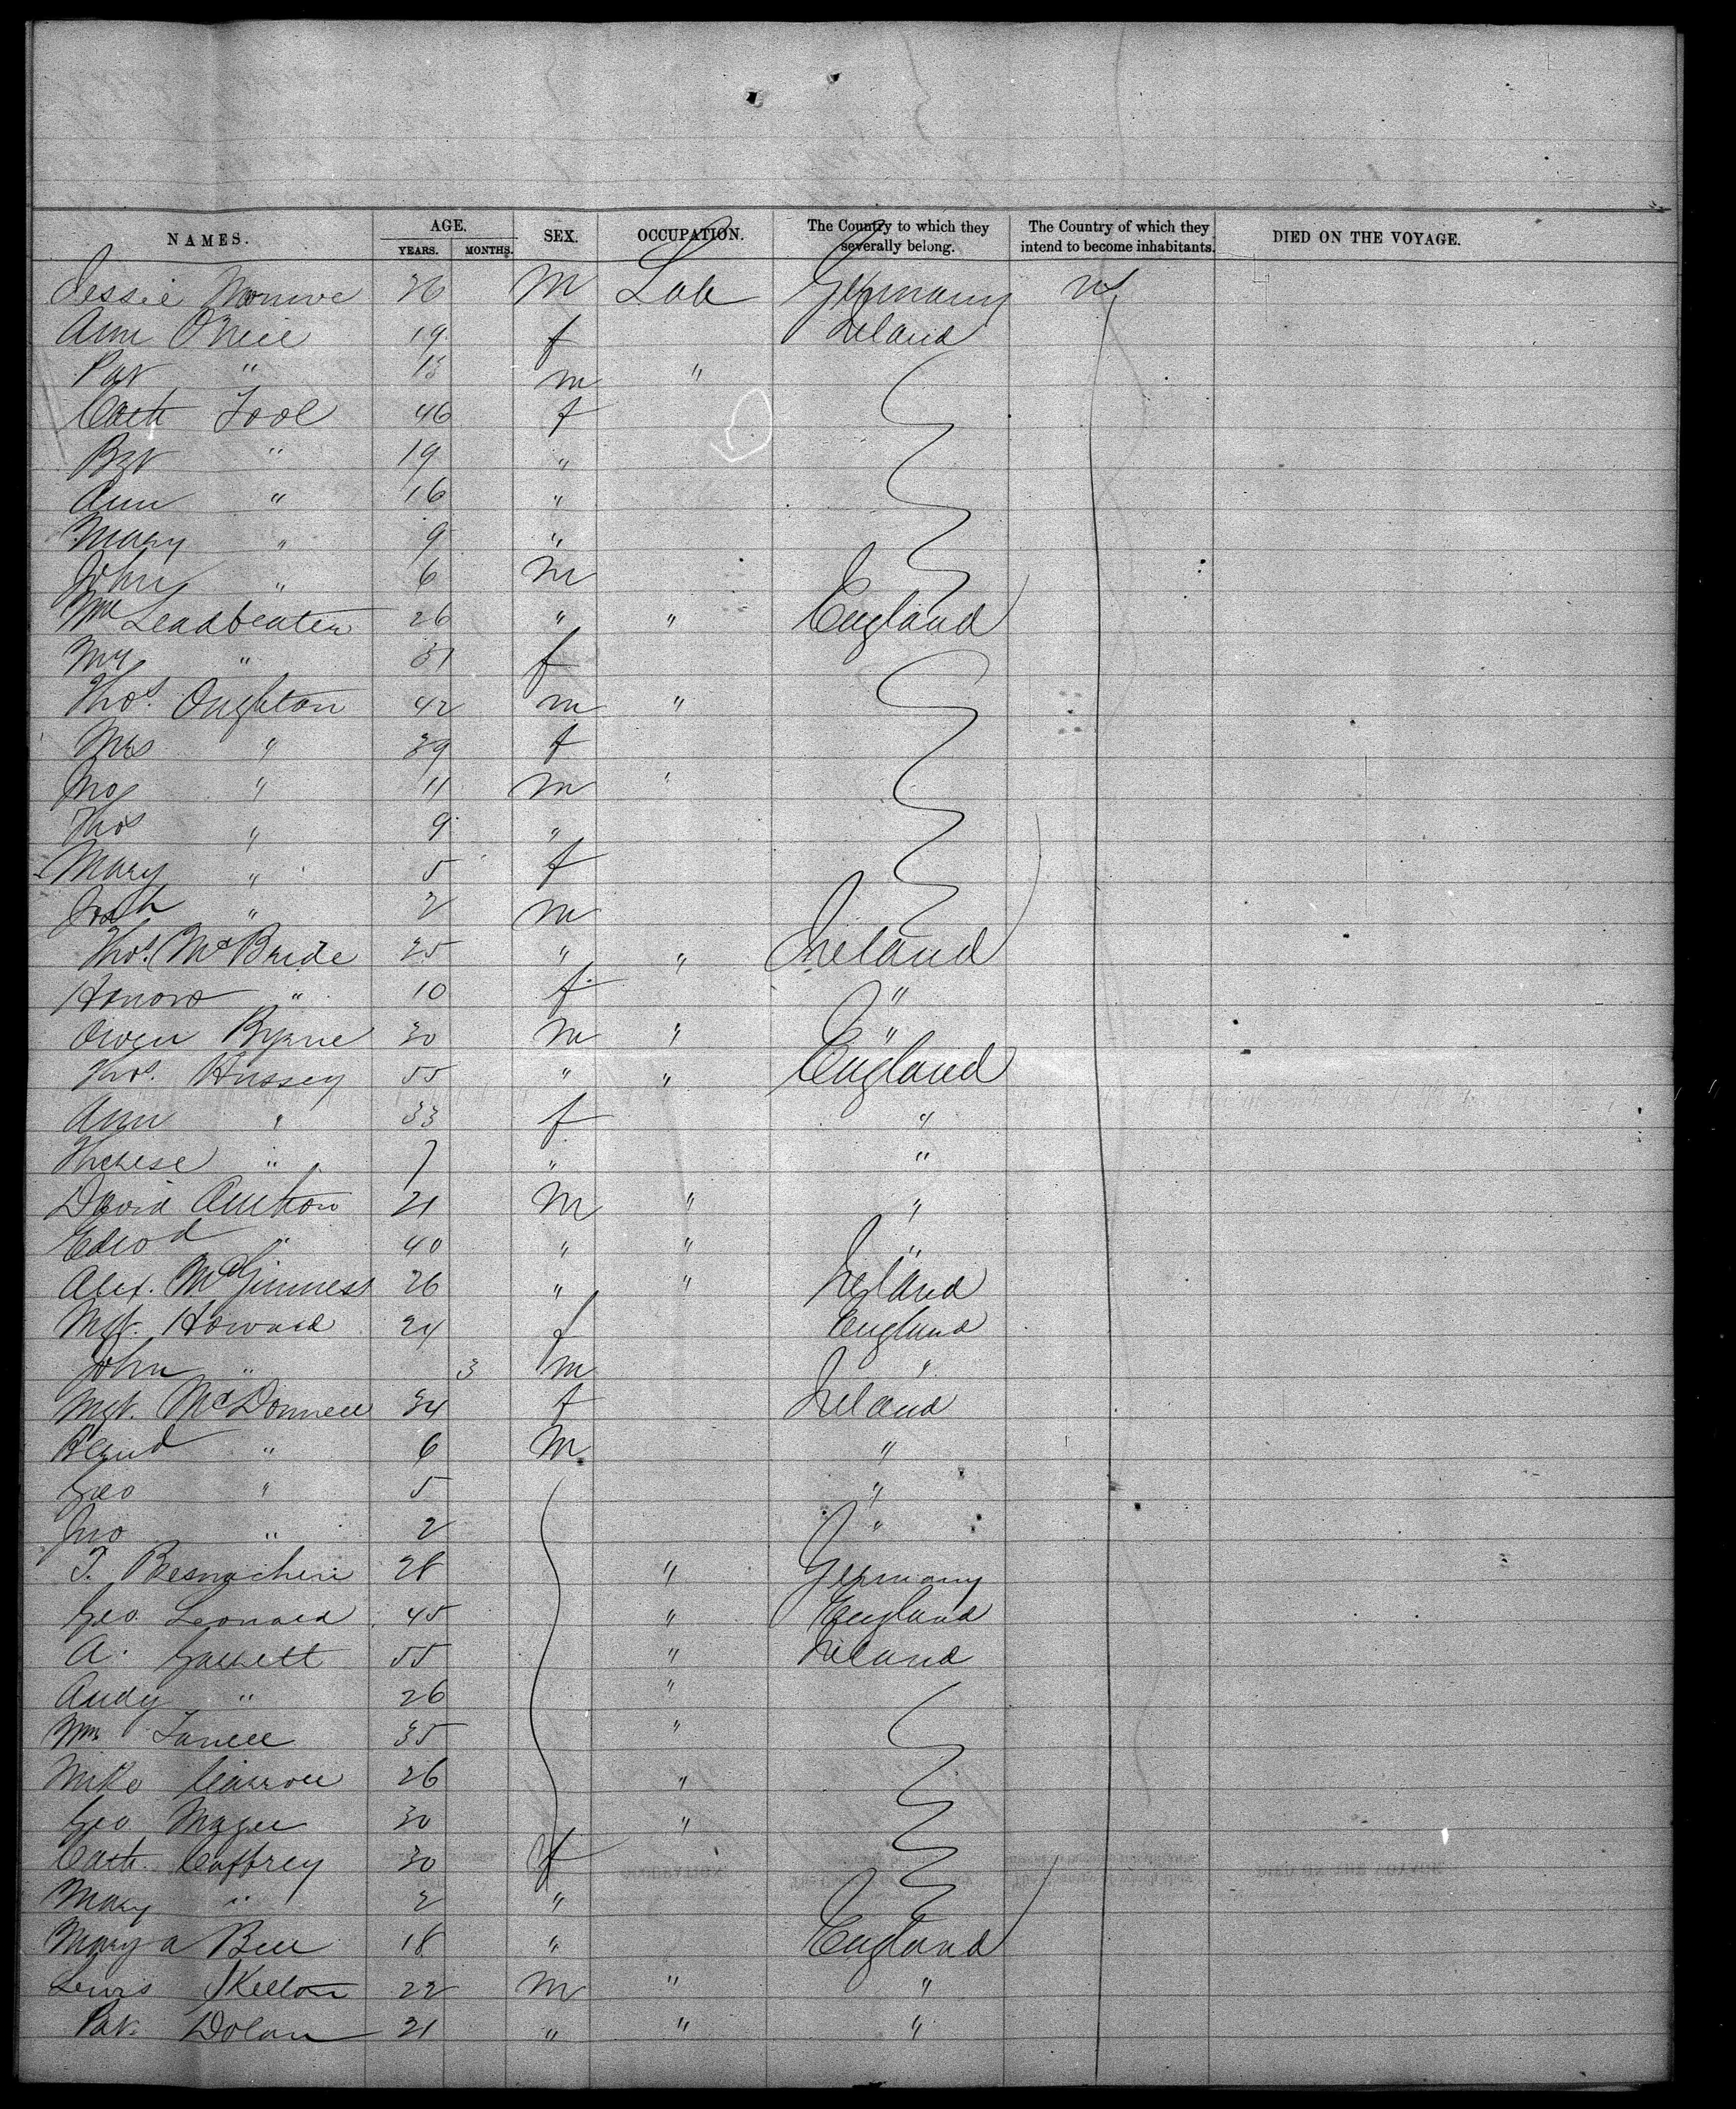 NAMES. AGE. SEX. OCCUPATION. The Country to which they severally belong. The Country of which they intend to become inhabitants. DIED ON THE VOYAGE.
YEARS. MONTHS.
Jessie 36 m Lab Germany
Ann ONeil 19 f Ireland
Pat " 13 m "
Cath Tool 46 f
Bgt " 19 "
Ann " 16 "
Mary " 9 "
John " 6 m
Wm Leadbeater 26 " " England
My " 31 f
Thos. Oughton 42 m "
Mrs " 39 f
Jno " 11 m "
Thos " 9 "
Mary " 5 f
" 2 m
Thos. McBride 25 " " Ireland
Honora " 10 f "
Owen Byrne 30 m " "
Thos. Hussey 55 " " England
Ann " 33 f "
Therese " 7 " "
David 21 m " "
Edwd " 40 " " "
Alex. McGinness 26 " " Ireland
Mgt. Howard 24 f England
John " 3 m "
Mgt. McDonnell 34 f Ireland
Bernd " 6 m "
Geo " 5 "
Jno " 2 "
T. 28 " Germany
Geo. Leonard 45 " England
A. Garrett 55 " Ireland
Andy " 26 "
Wm 35 "
Mike Carroll 26 "
Geo Magee 30 "
Cath. Caffrey 30 f
Mary " 2 "
Mary a Bell 18 " England
Lewis Skelton 22 m " "
Pat. Dolan 21 " " "